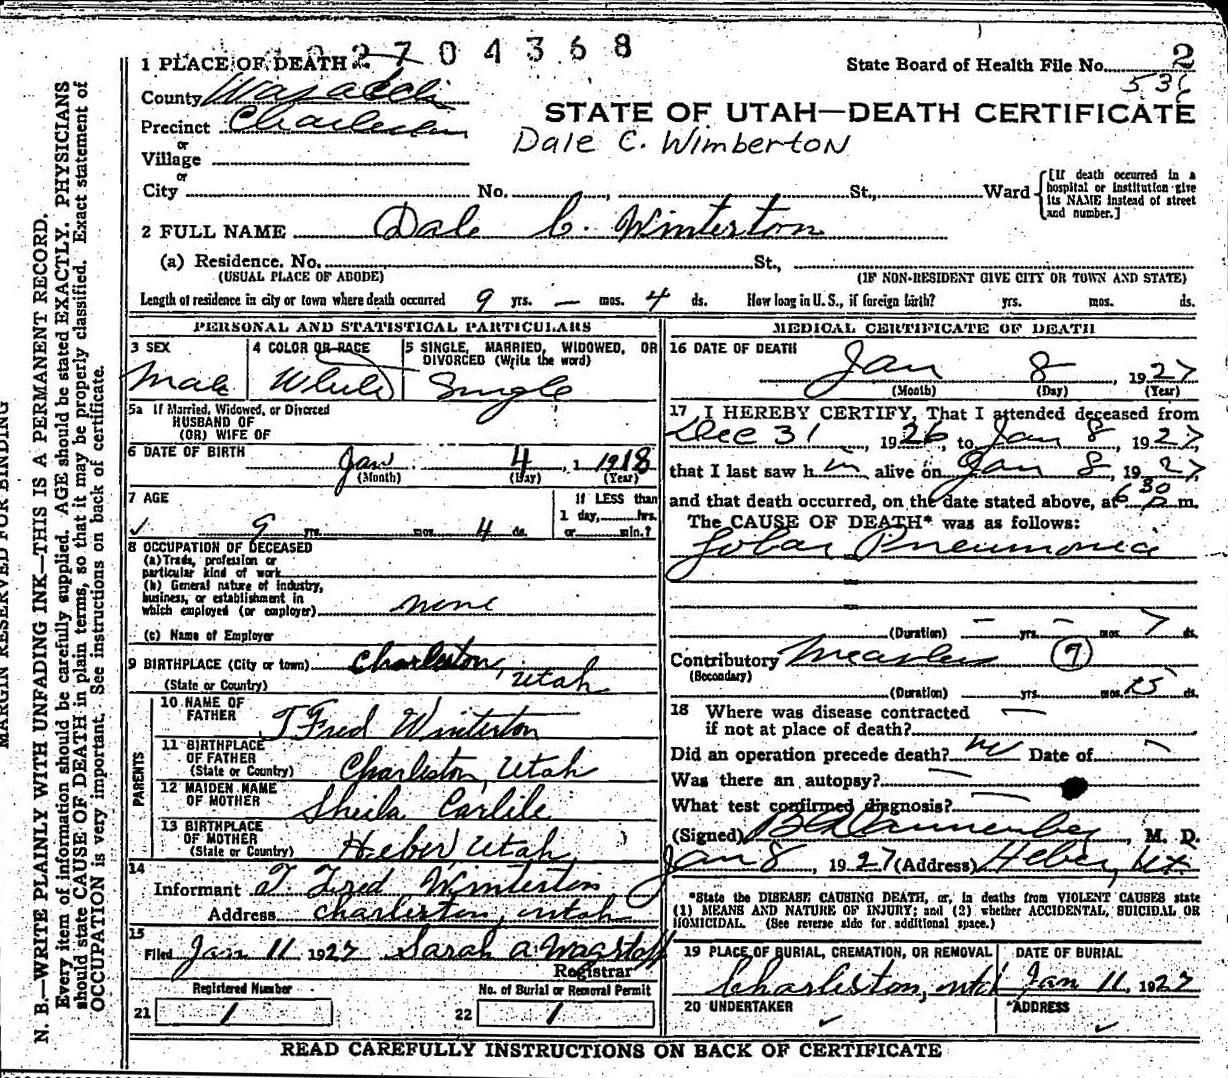 2704368
1 PLACE OF DEATH
State Board of Health File No. 2
536
County Wasatch
STATE OF UTAH—DEATH CERTIFICATE
Precinct Charleston
Dale C. Wimberton
or
Village
or
City No. St., Ward [If death occurred in a hospital or institution give its NAME instead of street and number.]
2 FULL NAME Dale C. Winterton
(a) Residence. No. St.,
(USUAL PLACE OF ABODE) (IF NON-RESIDENT GIVE CITY OR TOWN AND STATE)
Length of residence in city or town where death occurred 9 yrs. — mos. 4 ds. How long in U. S., if foreign birth? yrs. mos. ds.
PERSONAL AND STATISTICAL PARTICULARS
3 SEX 4 COLOR OR RACE 5 SINGLE, MARRIED, WIDOWED, OR
DIVORCED (Write the word)
Male White Single
5a If Married, Widowed, or Divorced
HUSBAND OF
(OR) WIFE OF
6 DATE OF BIRTH Jan 4, 1 1918
(Month) (Day) (Year)
7 AGE If LESS than
1 day, hrs.
9 yrs. mos. 4 ds. or min.?
8 OCCUPATION OF DECEASED
(a) Trade, profession or
particular kind of work
(b) General nature of industry,
business, or establishment in
which employed (or employer) none
(c) Name of Employer
9 BIRTHPLACE (City or town) Charleston,
(State or Country) Utah
PARENTS
10 NAME OF
FATHER T Fred Winterton
11 BIRTHPLACE
OF FATHER
(State or Country) Charleston, Utah
12 MAIDEN NAME
OF MOTHER Sheila Carlile
13 BIRTHPLACE
OF MOTHER
(State or Country) Heber Utah
14
Informant T Fred Winterton
Address Charleston, Utah
15
Filed Jan 11 1927 Sarah A Wagstaff
Registrar
Registered Number No. of Burial or Removal Permit
21 1 22 1
MEDICAL CERTIFICATE OF DEATH
16 DATE OF DEATH
Jan 8, 1927
(Month) (Day) (Year)
17 I HEREBY CERTIFY, That I attended deceased from
Dec 31, 1926, to Jan 8, 1927,
that I last saw h im alive on Jan 8, 1927,
and that death occurred, on the date stated above, at 6 30 p m.
The CAUSE OF DEATH* was as follows:
Lobar Pneumonia
(Duration) — yrs. — mos. 7 ds.
Contributory Measles 7
(Secondary)
(Duration) yrs. mos. 15 ds.
18 Where was disease contracted
if not at place of death? —
Did an operation precede death? no Date of —
Was there an autopsy? —
What test confirmed diagnosis? —
(Signed) , M. D.
Jan 8, 1927 (Address) Heber, Ut.
*State the DISEASE CAUSING DEATH, or, in deaths from VIOLENT CAUSES state
(1) MEANS AND NATURE OF INJURY; and (2) whether ACCIDENTAL, SUICIDAL OR
HOMICIDAL. (See reverse side for additional space.)
19 PLACE OF BURIAL, CREMATION, OR REMOVAL DATE OF BURIAL
Charleston, Utah Jan 11, 1927
20 UNDERTAKER ADDRESS
READ CAREFULLY INSTRUCTIONS ON BACK OF CERTIFICATE
MARGIN RESERVED FOR BINDING
N. B.—WRITE PLAINLY WITH UNFADING INK—THIS IS A PERMANENT RECORD.
Every item of information should be carefully supplied. AGE should be stated EXACTLY. PHYSICIANS
should state CAUSE OF DEATH in plain terms, so that it may be properly classified. Exact statement of
OCCUPATION is very important. See instructions on back of certificate.